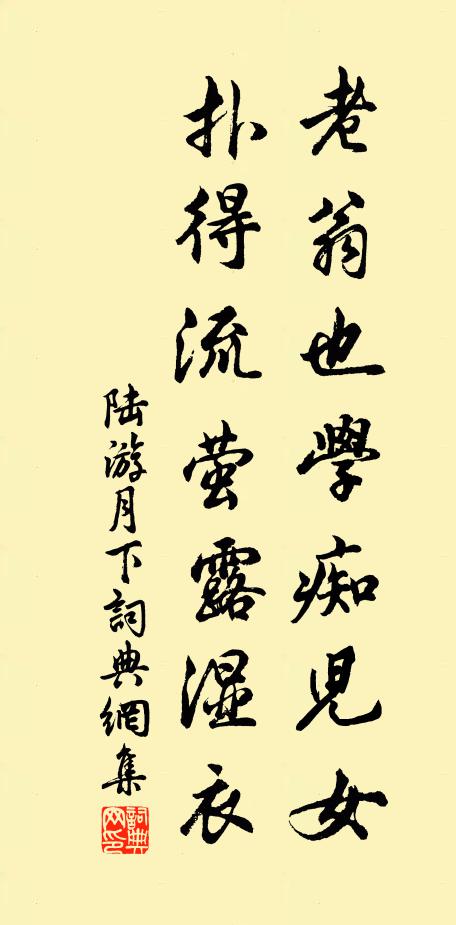 老翁也學痴兒女
扑得流萤露湿衣
陆游月下詞典網集
詞典网印